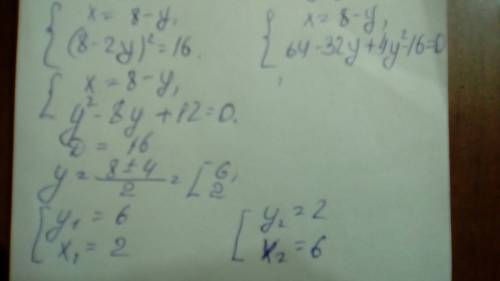 { x = 8 - y,
(8 - 2y)² = 16.
{ x = 8 - y,
64 - 32y + 4y² - 16 = 0
{ x = 8 - y,
y² - 8y + 12 = 0.
D = 16
y = (8 ± 4)/2 = [ 6, 2
{ y₁ = 6
x₁ = 2
[ y₂ = 2
x₂ = 6